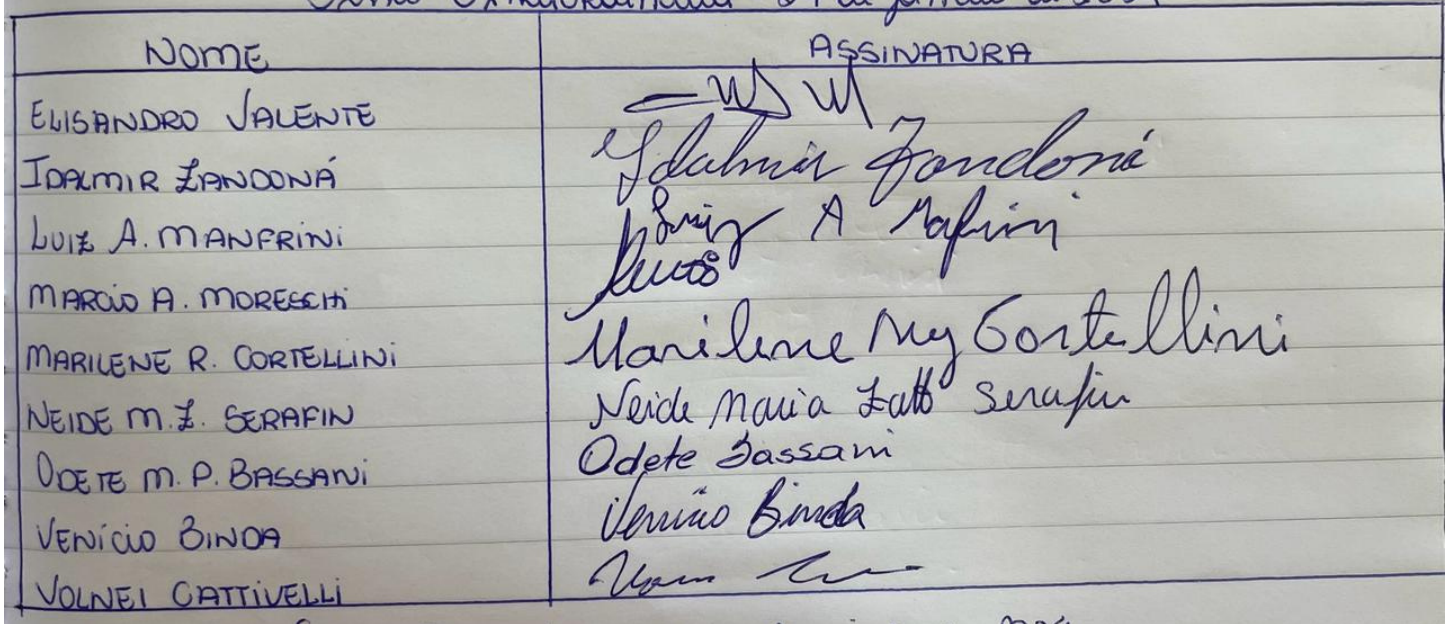 NOME ASSINATURA
ELISANDRO VALENTE
IDALMIR ZANDONÁ Idalmir Zandoná
LUIZ A. MANFRINI Luiz A Mafrini
MARCIO A. MORESCHI
MARILENE R. CORTELLINI Marilene Cortellini
NEIDE M. Z. SERAFIN Neide Maria Zatt Serafin
ODETE M. P. BASSANI Odete Bassani
VENÍCIO BINDA Venício Binda
VOLNEI CATTIVELLI